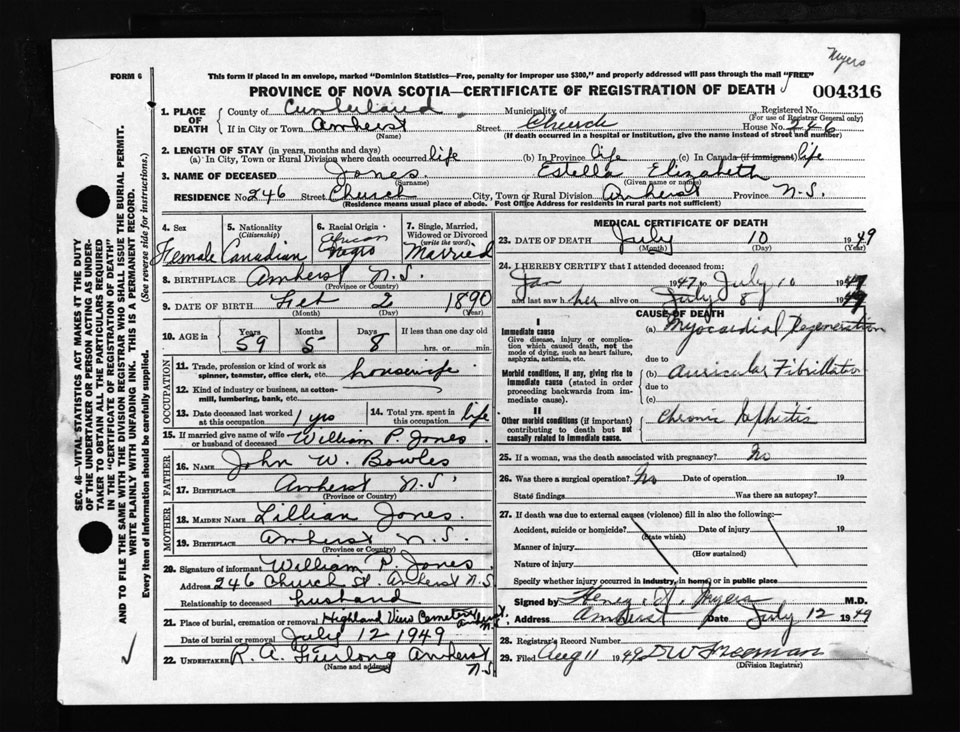 Myers
FORM 6
This form if placed in an envelope, marked "Dominion Statistics—Free, penalty for improper use $300," and properly addressed will pass through the mail "FREE"
PROVINCE OF NOVA SCOTIA—CERTIFICATE OF REGISTRATION OF DEATH
004316
1. PLACE OF DEATH
County of Cumberland Municipality of Registered No.
(For use of Registrar General only)
If in City or Town Amherst Street Church House No. 246
(Name) (If death occurred in a hospital or institution, give the name instead of street and number)
2. LENGTH OF STAY (in years, months and days)
(a) In City, Town or Rural Division where death occurred life (b) In Province life (c) In Canada (if immigrant) life
3. NAME OF DECEASED Jones Estella Elizabeth
(Surname) (Given name or names)
RESIDENCE No. 246 Street Church City, Town or Rural Division Amherst Province N.S.
(Residence means usual place of abode. Post Office Address for residents in rural parts not sufficient)
4. Sex Female
5. Nationality (Citizenship) Canadian
6. Racial Origin African Negro
7. Single, Married, Widowed or Divorced (write the word) Married
8. BIRTHPLACE Amherst N.S.
(Province or Country)
9. DATE OF BIRTH Feb 2 1890
(Month) (Day) (Year)
10. AGE in Years 59 Months 5 Days 8 If less than one day old hrs. or min.
OCCUPATION
11. Trade, profession or kind of work as spinner, teamster, office clerk, etc. housewife
12. Kind of industry or business, as cotton-mill, lumbering, bank, etc.
13. Date deceased last worked at this occupation 1 yrs
14. Total yrs. spent in this occupation life
15. If married give name of wife or husband of deceased William P. Jones
FATHER
16. NAME John W. Bowles
17. BIRTHPLACE Amherst N.S.
(Province or Country)
MOTHER
18. MAIDEN NAME Lillian Jones
19. BIRTHPLACE Amherst N.S.
(Province or Country)
20. Signature of informant William P. Jones
Address 246 Church St. Amherst N.S.
Relationship to deceased husband
21. Place of burial, cremation or removal Highland View Cemetery Amherst N.S.
Date of burial or removal July 12 1949
22. UNDERTAKER R. A. Furlong Amherst N.S.
(Name and address)
MEDICAL CERTIFICATE OF DEATH
23. DATE OF DEATH July 10 1949
(Month) (Day) (Year)
24. I HEREBY CERTIFY that I attended deceased from:
Jan 1947 to July 10 1949
and last saw her alive on July 8 1949
CAUSE OF DEATH
I
Immediate cause
Give disease, injury or complication which caused death, not the mode of dying, such as heart failure, asphyxia, asthenia, etc.
(a) Myocardial Degeneration
due to
Morbid conditions, if any, giving rise to immediate cause (stated in order proceeding backwards from immediate cause).
(b) Auricular Fibrillation
due to
(c)
II
Other morbid conditions (if important) contributing to death but not causally related to immediate cause.
Chronic Nephritis
25. If a woman, was the death associated with pregnancy? No
26. Was there a surgical operation? No Date of operation 19
State findings Was there an autopsy?
27. If death was due to external causes (violence) fill in also the following:—
Accident, suicide or homicide? Date of injury 19
(State which)
Manner of injury
(How sustained)
Nature of injury
Specify whether injury occurred in industry, in home, or in public place
Signed by Henry H. Myers M.D.
Address Amherst Date July 12 1949
28. Registrar's Record Number
29. Filed Aug 11 1949 D W Freeman
(Division Registrar)
SEC. 46—VITAL STATISTICS ACT MAKES IT THE DUTY
OF THE UNDERTAKER OR PERSON ACTING AS UNDER-
TAKER TO OBTAIN ALL THE PARTICULARS REQUIRED
IN THE "CERTIFICATE OF REGISTRATION OF DEATH"
AND TO FILE THE SAME WITH THE DIVISION REGISTRAR WHO SHALL ISSUE THE BURIAL PERMIT.
WRITE PLAINLY WITH UNFADING INK. THIS IS A PERMANENT RECORD.
Every item of information should be carefully supplied. (See reverse side for instructions.)